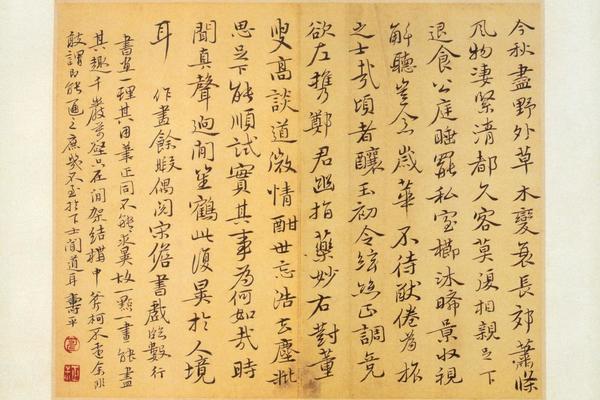 今秋盡野外草木變衰長郊蕭條
風物淒緊清都久客莫復相親足下
退食公庭睡罷私室櫛沐晞景收視
解聽豈念歲華不待猒倦為旅
之士哉頃者釀玉初令絃絲正調竟
欲左携鄭君幽指藥妙右對董
叟高談道微情酣世忘浩去塵紲
思足下能順試實其事為何如哉時
聞真聲迥聞笙鶴此復異於人境
耳 作畫餘暇偶閱宋儋書戲臨數行
書畫一理其用筆正同不能求異故一點畫能盡
其趣千巖萬壑只在間架結構中斧柯不遠余非
敢謂即能通之庶幾不至於下士聞道耳 壽平